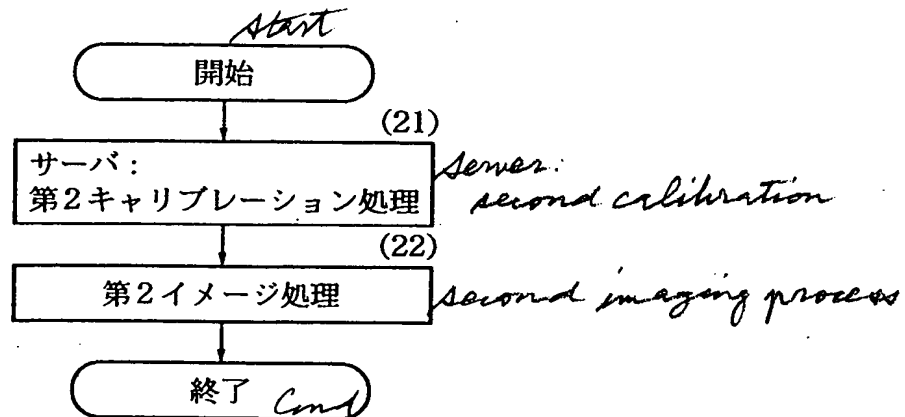 start
開始
(21)
サーバ：
第2キャリブレーション処理
server:
second calibration
(22)
第2イメージ処理
second imaging process
終了